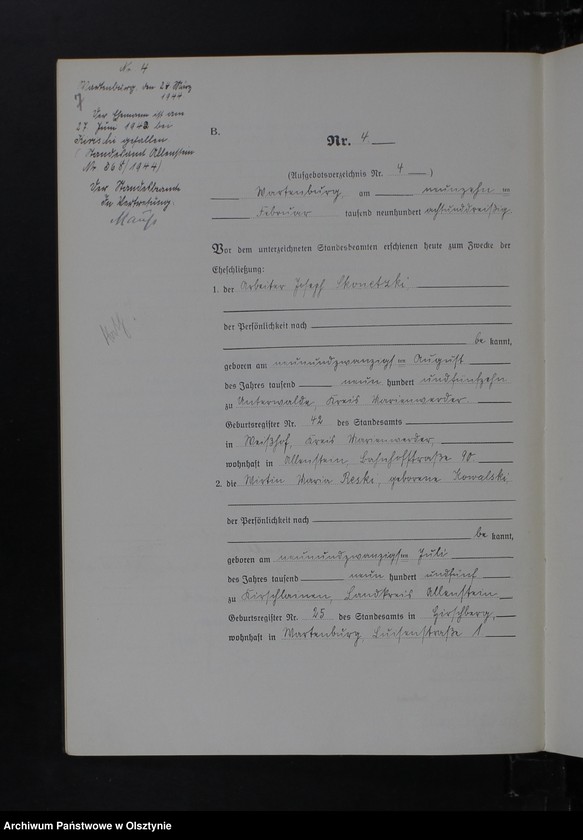 No 4
Wartenburg, den 28 März
1944
Der Ehemann ist am
27 Juni 1942 bei
gefallen
(Standesamt Allenstein
No 868/1944)
Der Standesbeamte
In Vertretung.
B.
Nr. 4
(Aufgebotsverzeichnis Nr. 4)
Wartenburg, am neunzehnten
Februar tausend neunhundert achtunddreißig.
Vor dem unterzeichneten Standesbeamten erschienen heute zum Zwecke der
Eheschließung:
1. der Arbeiter Joseph Skonetzki
der Persönlichkeit nach
be kannt,
geboren am neunundzwanzigsten August
des Jahres tausend neun hundert undfünfzehn
zu Unterwalde, Kreis Marienwerder.
Geburtsregister Nr. 42 des Standesamts
in Weißhof, Kreis Marienwerder,
wohnhaft in Allenstein, Bahnhofstraße 90
2. die Wirtin Maria Reski, geborene Kowalski,
der Persönlichkeit nach
be kannt,
geboren am neunundzwanzigsten Juli
des Jahres tausend neun hundert undfünf
zu Kirschlainen, Landkreis Allenstein
Geburtsregister Nr. 25 des Standesamts in Hirschberg,
wohnhaft in Wartenburg, Luisenstraße 1
Archiwum Państwowe w Olsztynie